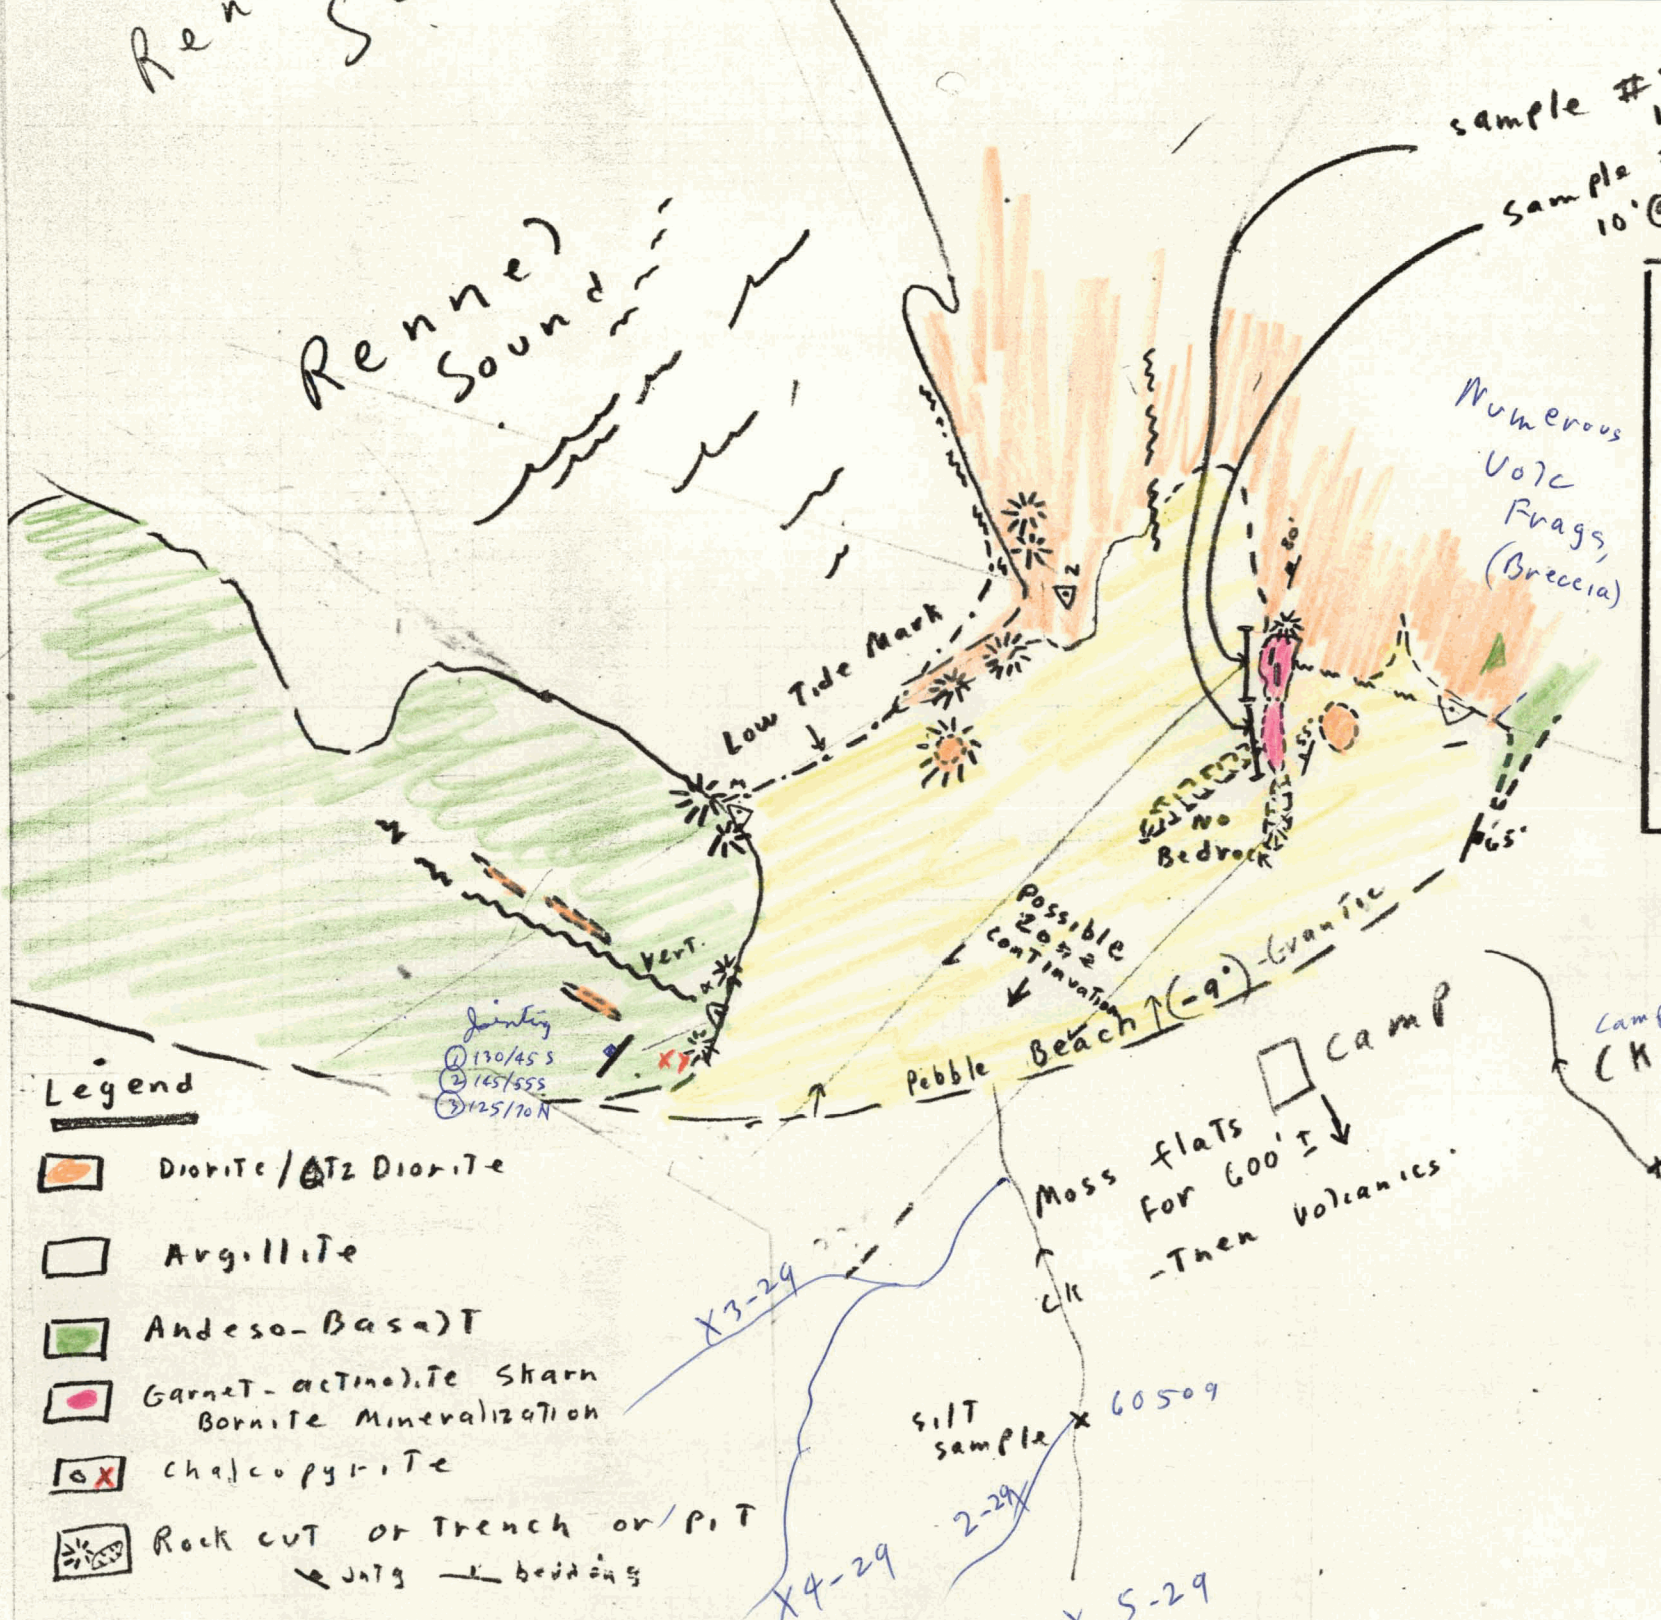 Ren
S
sample #
sample
10' @
Rennel
Sound
Numerous
Volc
Frags,
(Breccia)
80'
2
Low Tide Mark
3
55
No
Bedrock
65'
Possible
Zone
continuation
vert.
Pebble Beach (-9°) - Granitic
Jointing
① 130/45 S
② 145/55 S
③ 125/70 N
camp
Camp
CK
Moss flats
For 600' ±
- Then volcanics.
CK
X3-29
silt
sample
X 60509
2-29 X
X4-29
X 5-29
Legend
Diorite / QTz Diorite
Argillite
Andeso-Basalt
Garnet-actinolite Skarn
Bornite Mineralization
Chalcopyrite
Rock cut or Trench or pit
Jntg bedding